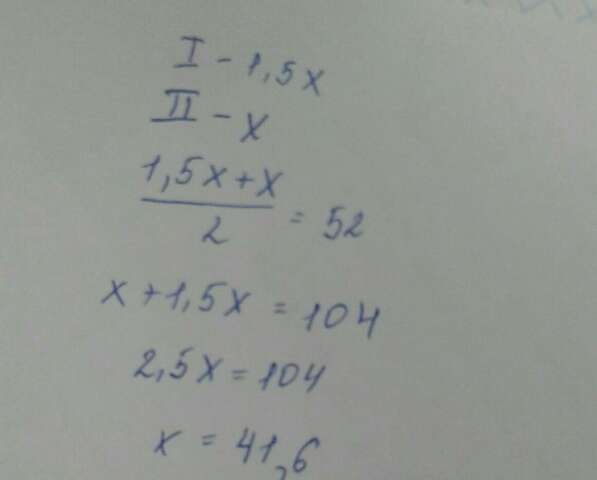 I - 1,5x
II - x
(1,5x+x)/2 = 52
x+1,5x = 104
2,5x = 104
x = 41,6